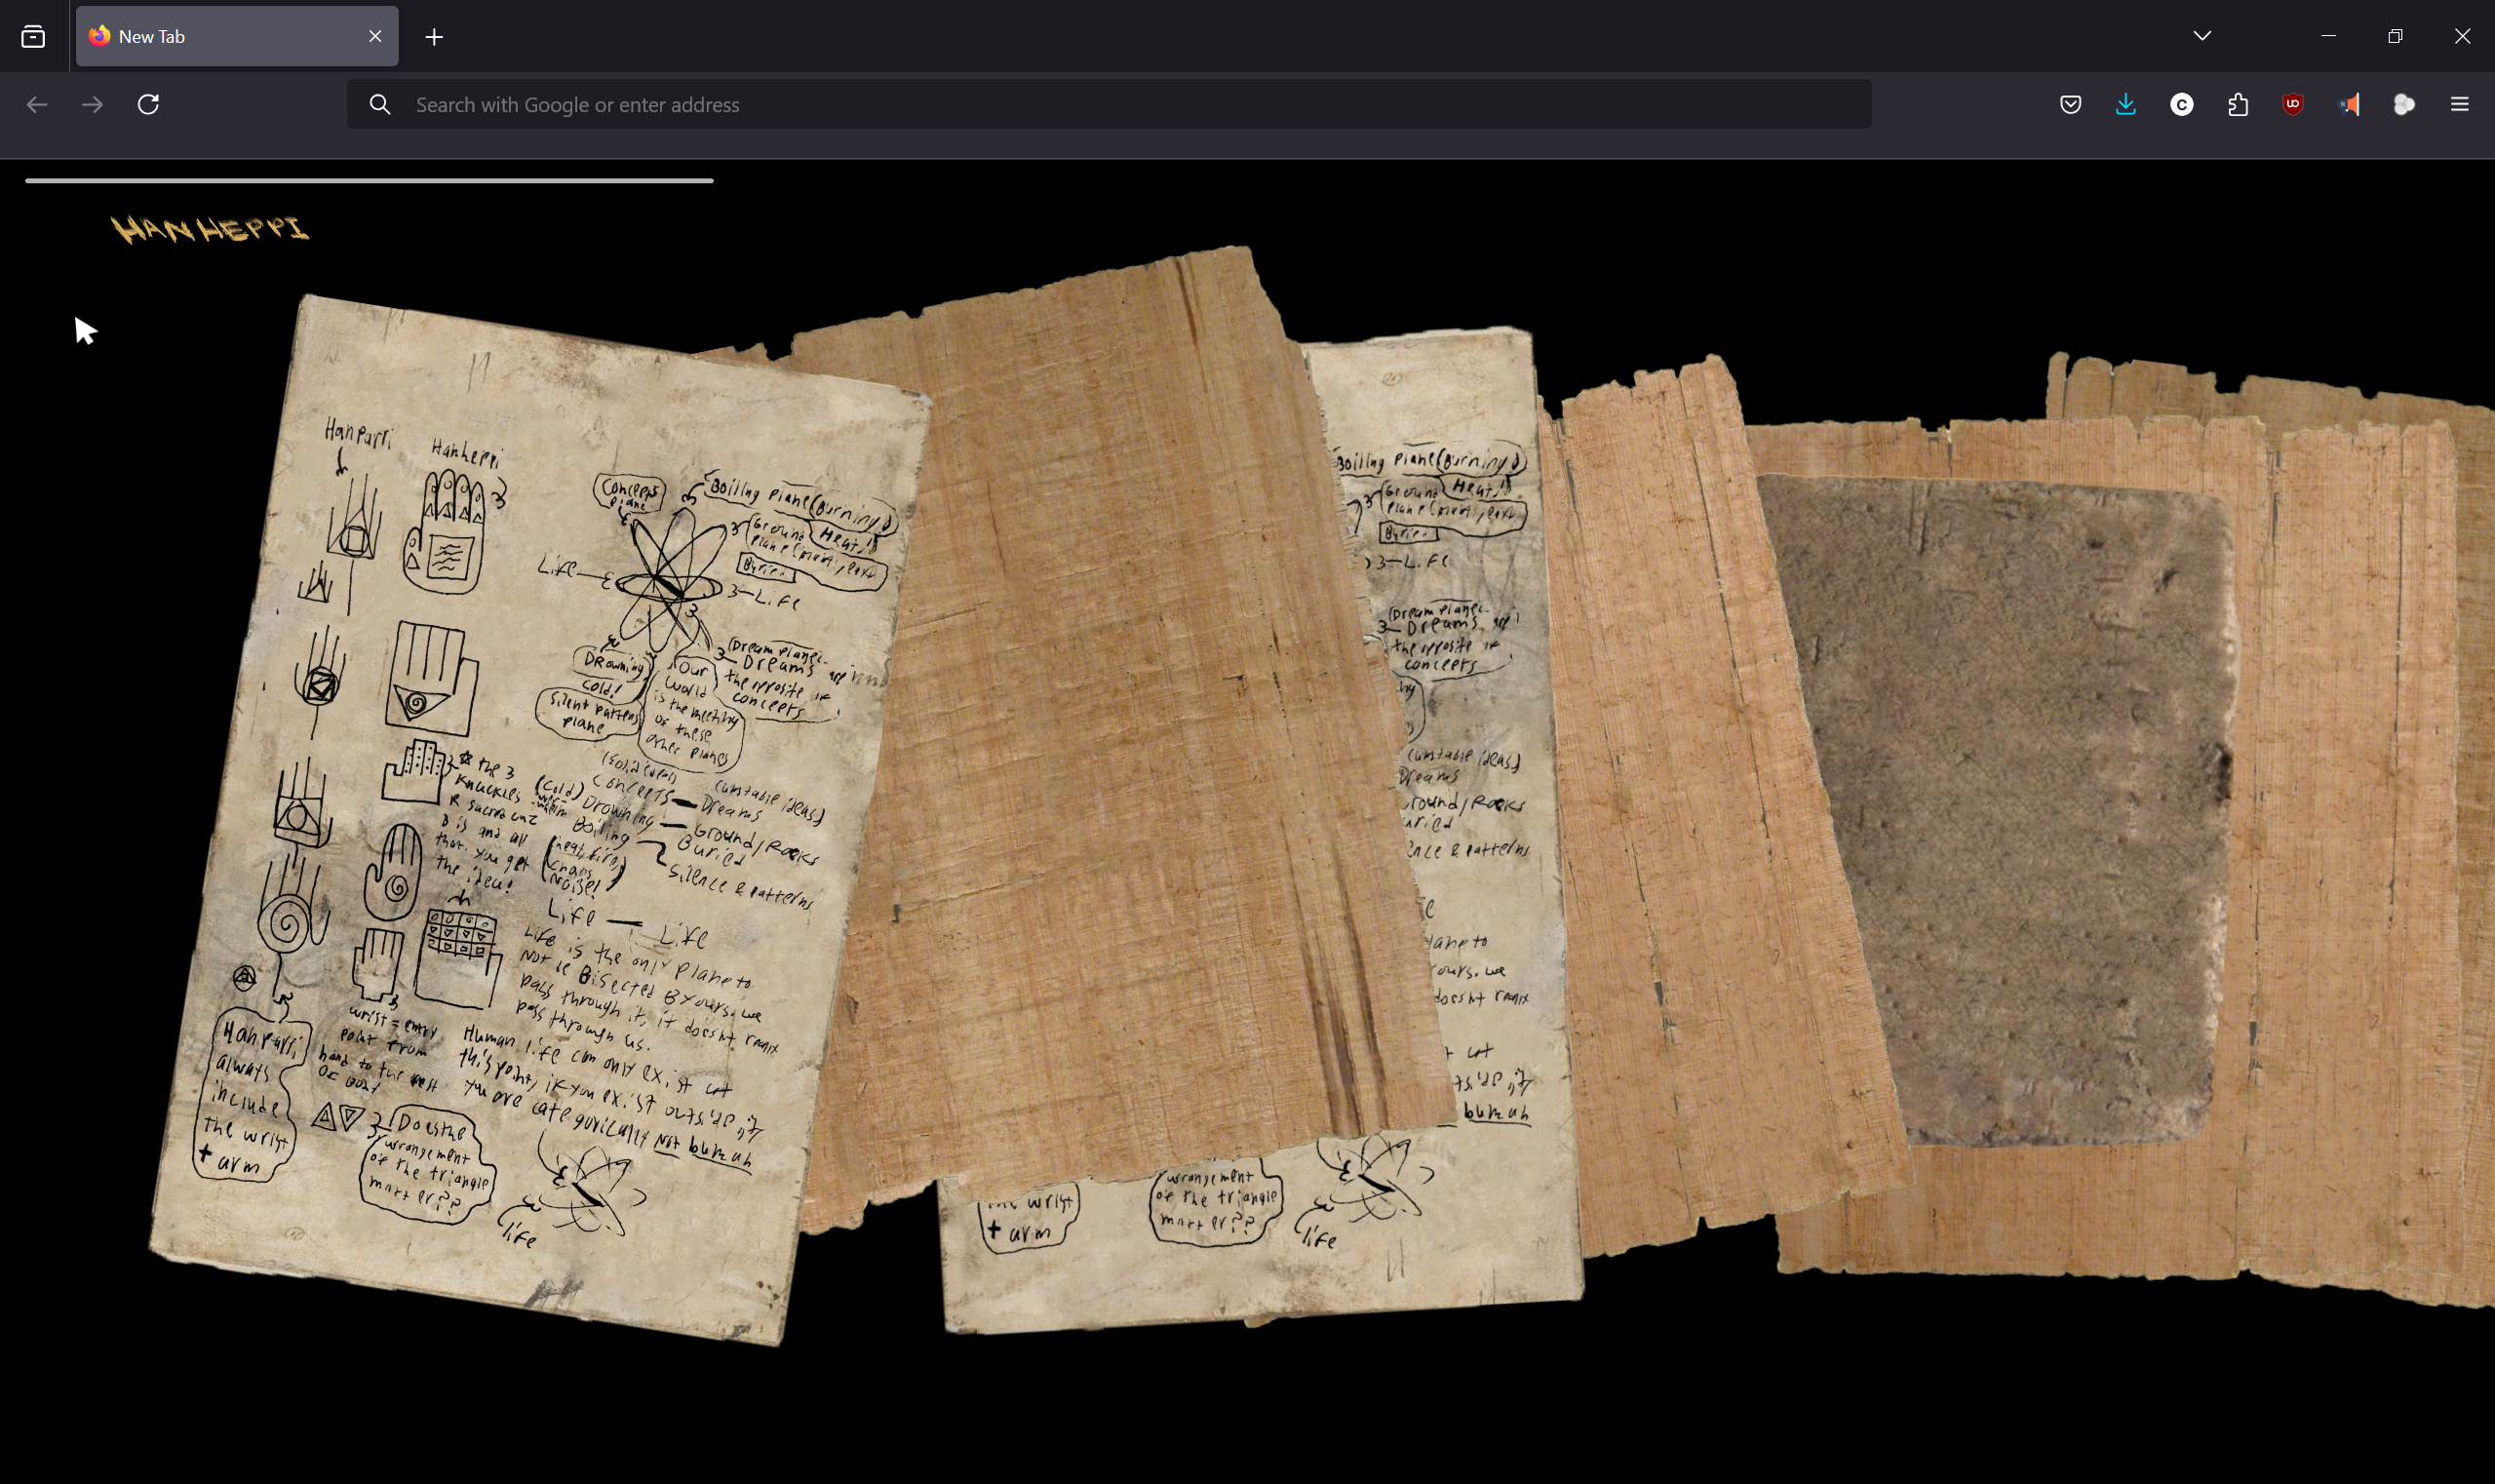 New Tab
Search with Google or enter address
HANHEPPI
Hanparri
Hanheppi
Concepts
plane
Boiling plane (Burning!)
Heat!
Ground
plane
Buried
Life
Life
Drowning
Cold!
Silent pattern
plane
Our
world
is the meeting
of these
other planes
(Dream plane:
Dreams are
the opposite of
concepts
the 3
knuckles
R sacred
3 is and all
that. you get
the idea!
(Cold)
Concepts — Dreams
(unstable ideas)
Drowning — Ground/Rocks
Buried
Boiling
(heat, fire,
chaos,
noise!)
Silence & patterns
Life — Life
Life is the only plane to
not be Bisected BY ours. we
pass through it, it doesnt
pass through us.
Human life can only exist at
this point, if you exist outside it
you are categorically Not human
wrist = entry
point from
hand to the rest
of body
Hanparri
always
include
the wrist
+ arm
Does the
arrangement
of the triangle
matter??
life
Boiling plane (Burning!)
Heat!
Ground
plane
Buried
Life
(Dream plane:
Dreams
the opposite of
concepts
(unstable ideas)
Dreams
round/Rocks
uried
ence & patterns
lane to
ours. we
doesnt
wrist
+ arm
arrangement
of the triangle
matter??
life